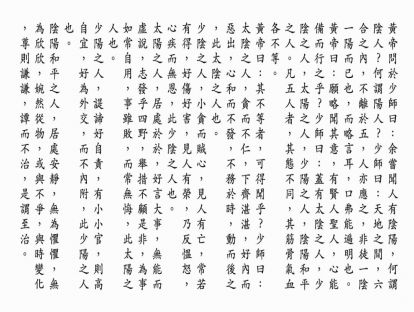 黃帝問於少師曰：余嘗聞人有陰陽，何謂
陰人？何謂陽人？少師曰：天地之間，六
合之內，不離於五，人亦應之，非徒一陰
一陽而已也，而略言耳，口弗能遍明也。
黃帝曰：願略聞其意，有賢人聖人，心能
備而行之乎？少師曰：蓋有太陰之人，少
陰之人，太陽之人，少陽之人，陰陽和平
之人。凡五人者，其態不同，其筋骨氣血
各不等。
黃帝曰：其不等者，可得聞乎？少師曰：
太陰之人，貪而不仁，下齊湛湛，好內而
惡出，心和而不發，不務於時，動而後之
，此太陰之人也。
少陰之人，小貪而賊心，見人有亡，常若
有得，好傷好害，見人有榮，乃反慍怒，
心疾而無恩，此少陰之人也。
太陽之人，居處於於，好言大事，無能而
虛說，志發乎四野，舉措不顧是非，為事
如常自用，事雖敗，而常無悔，此太陽之
人也。
少陽之人，諟諦好自貴，有小小官，則高
自宜，好為外交，而不內附，此少陽之人
也。
陰陽和平之人，居處安靜，無為懼懼，無
為欣欣，婉然從物，或與不爭，與時變化
，尊則謙謙，譚而不治，是謂至治。